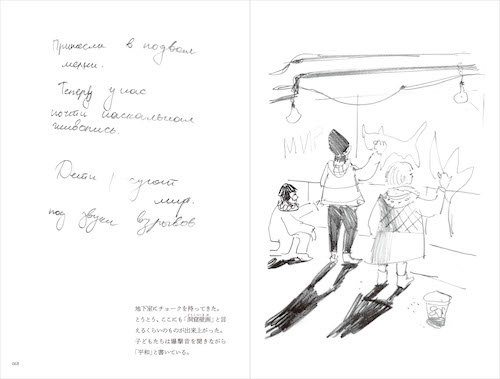 Принесли в подвал
мелки.
Теперь у нас
почти наскальная
живопись.
Дети рисуют
мир.
под звуки взрывов
地下室にチョークを持ってきた。
とうとう、ここにも「洞窟壁画」と言
えるくらいのものが出来上がった。
子どもたちは爆撃音を聞きながら
「平和」と書いている。
МИР